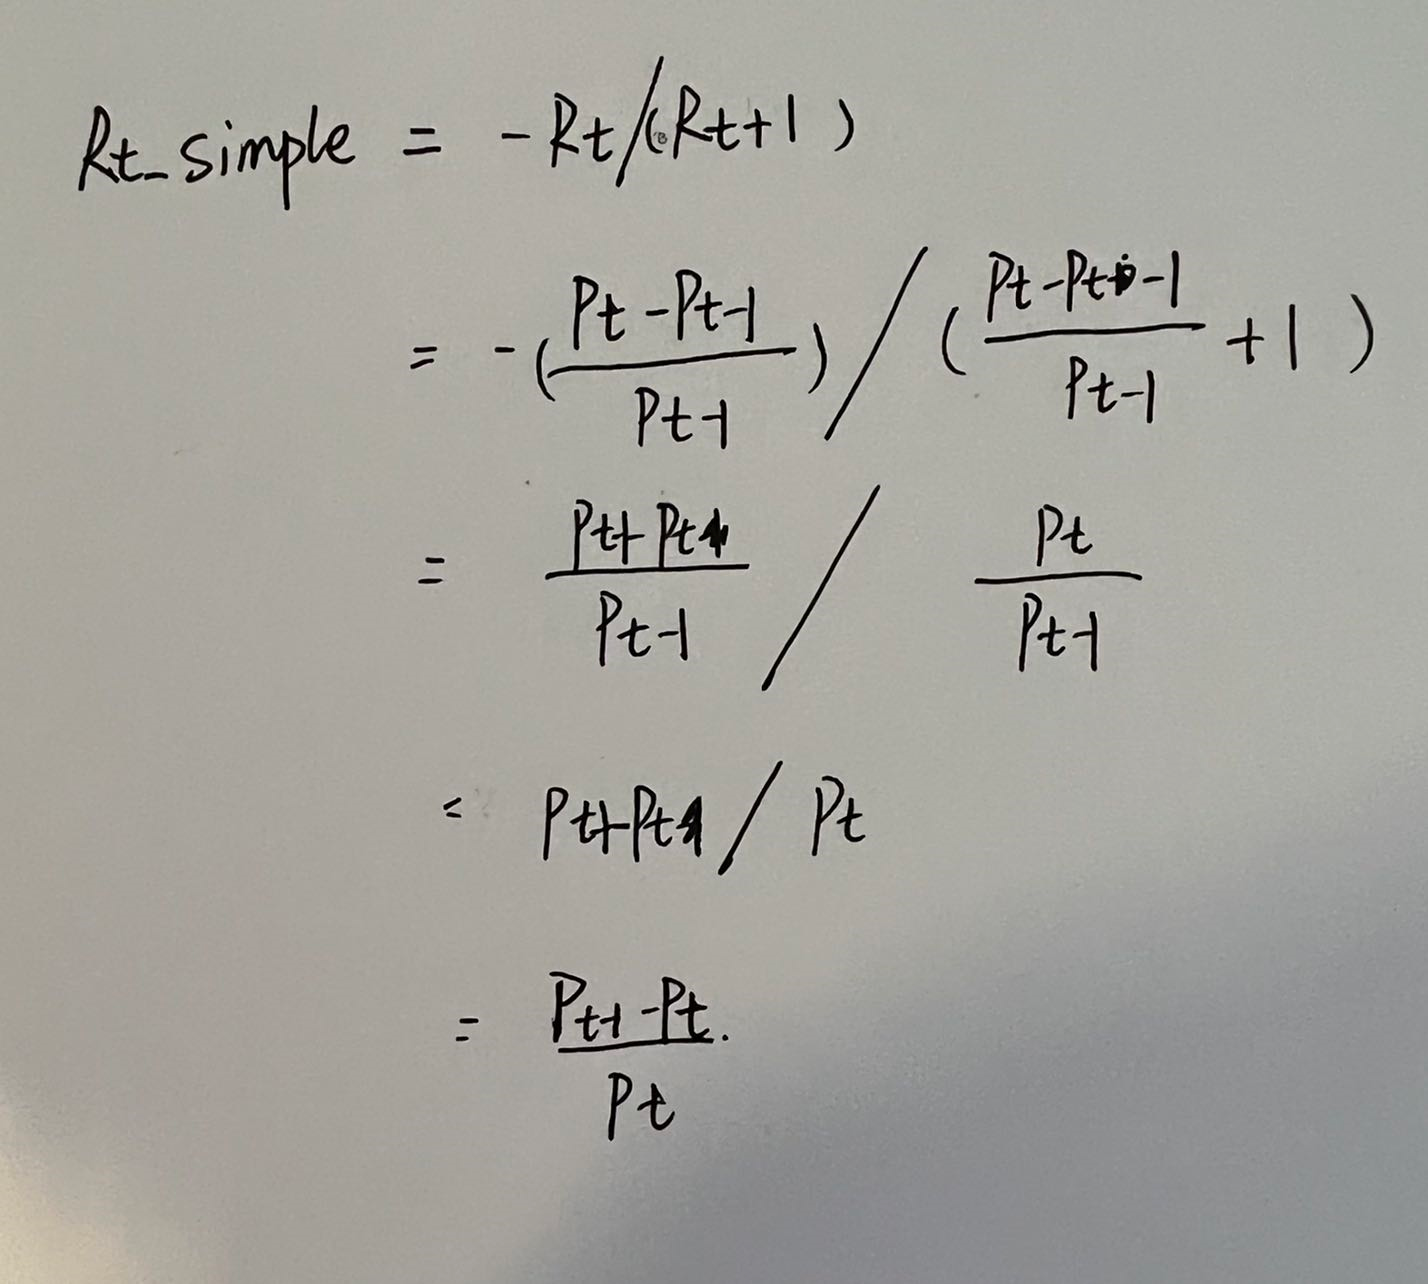 Rt_simple = -Rt/(Rt+1)
= -(Pt-Pt-1/Pt-1)/(Pt-Pt-1/Pt-1+1)
= Pt+Pt-1/Pt-1 / Pt/Pt-1
= Pt+Pt-1/Pt
= Pt-1-Pt./Pt